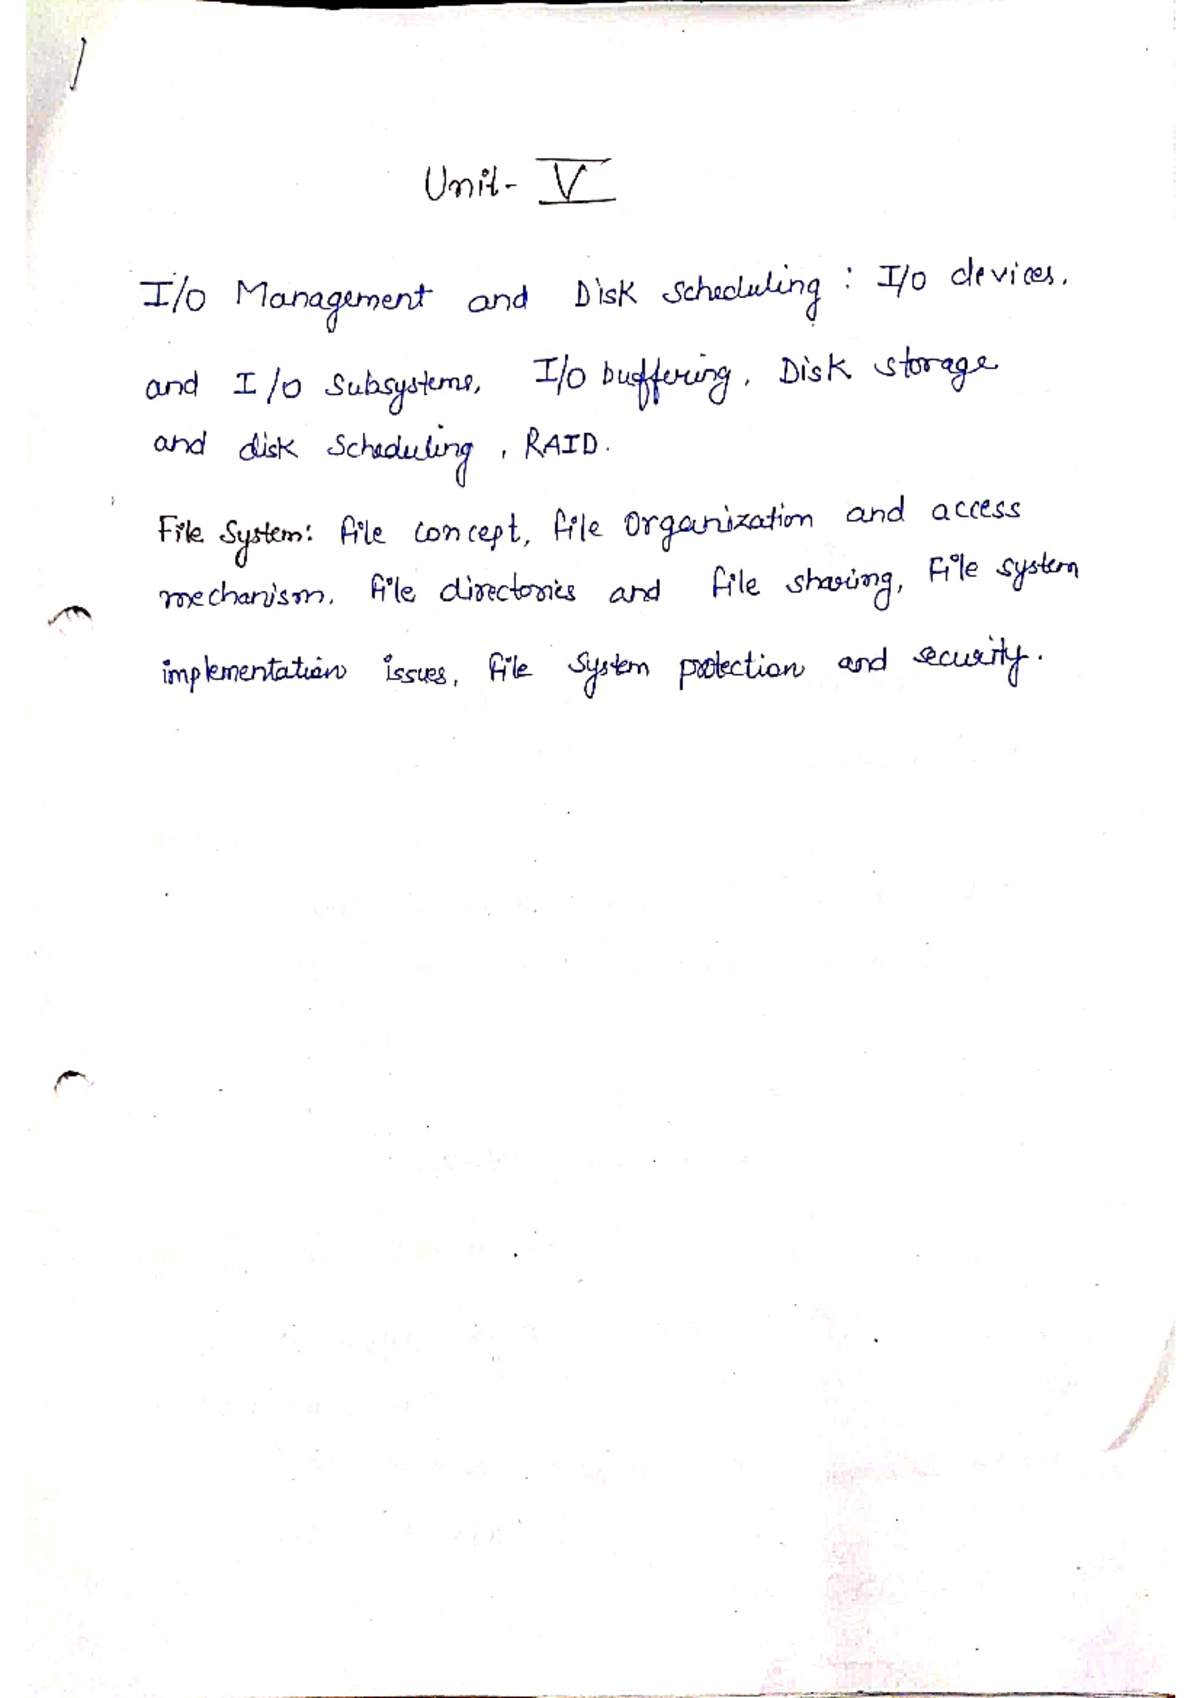 Unit- V
I/O Management and Disk Scheduling : I/O devices.
and I/O Subsystems, I/O buffering, Disk storage
and disk Scheduling, RAID.
File System: file concept, file organization and access
mechanism, file directories and file sharing, File system
implementation issues, file system protection and security.